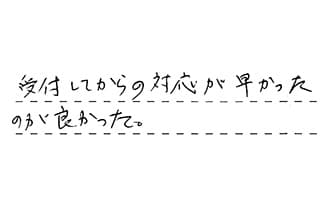 受付してからの対応が早かった
のが良かった。